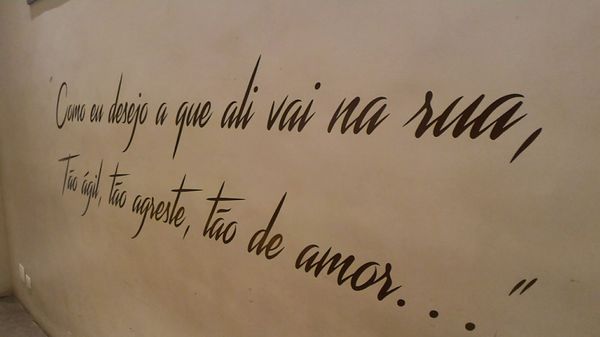 "Como eu desejo a que ali vai na rua,
Tão ágil, tão agreste, tão de amor..."